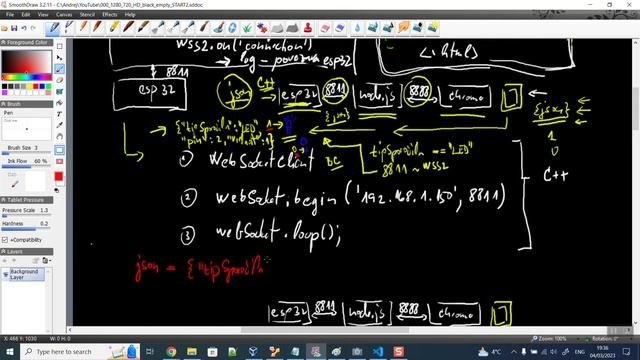 SmoothDraw 3.2.11 - C:\Andrej\YouTube\000_1280_720_HD_black_empty_START2.sddoc
Foreground Color
Brush
Pen
Brush Size 3
Ink Flow 60%
Tablet Pressure
Pressure Scale 1.3
Hardness 0.2
+Compatibility
Layers
Background Layer
WSS2.on('connection')
log - povezan esp32
</html>
8811
esp32
json C++
esp32 8811 node.js 8888 chrome
{json}
{json}
1
0
C++
"pin": 2, "
== "LED"
8811 ~ WSS2
BC
1 WebSocketClient
2 webSocket.begin ('192.168.1.150', 8811)
3 webSocket.loop();
json = {
esp32 8811 node.js 8888 chrome
X: 466 Y: 1030
Type here to search
4°C
ENG
19:36
04/03/2023